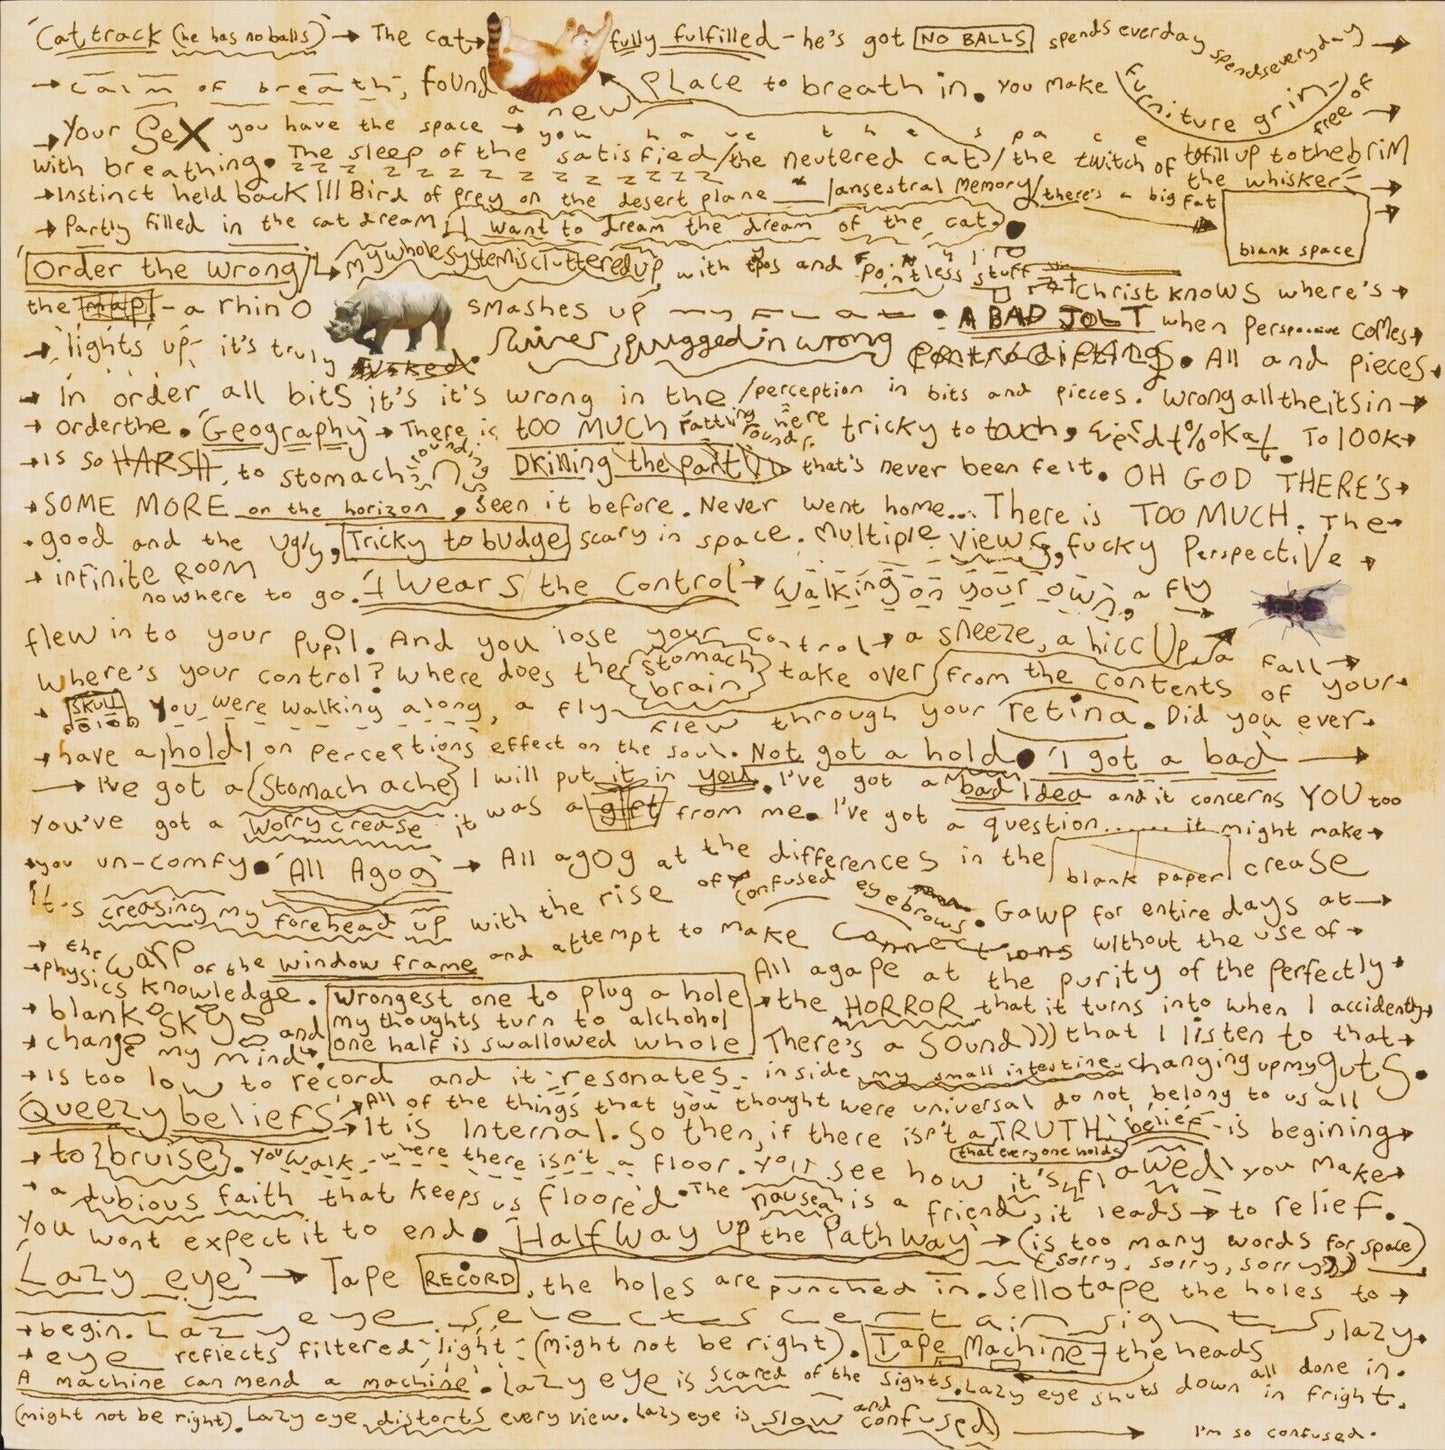 'Cat track (he has no balls)' → The cat → fully fulfilled - he's got NO BALLS spends everday spends everyday →
→ calm of breath, found a new place to breath in. You make furniture grin free of →
→ Your Sex you have the space → you have the space to fill up to the brim
with breathing. The sleep of the satisfied/the neutered cat/the twitch of the whisker →
zz z z z z z z z z z z z
→ Instinct held back III Bird of prey on the desert plane /ansestral Memory/ there's a big fat →
→ Partly filled in the cat dream, I want to dream the dream of the cat. blank space
Order the wrong → my whole system is cluttered up, with and pointless stuff Christ knows where's →
the map - a rhino smashes up my flat. A BAD JOLT when comes →
→ lights up - it's truly fucked. wires, plugged in wrong contradicting. All and pieces →
→ In order all bits it's it's wrong in the /perception in bits and pieces. Wrong all the its in →
→ order the. 'Geography' → There is too much rattling round here tricky to touch, To look →
→ is so HARSH, to stomach rounding Drilling the part that's never been felt. OH GOD THERE'S →
→ SOME MORE on the horizon, seen it before. Never went home... There is TOO MUCH. The →
→ good and the ugly, Tricky to budge scary in space. Multiple views, fucky Perspective →
→ infinite ROOM nowhere to go. 'I Wears the Control' → Walking on your own, a fly →
flew in to your pupil. And you lose your control → a sneeze, a hiccup, a fall →
Where's your control? Where does the stomach brain take over from the contents of your →
→ skull You were walking along, a fly flew through your retina. Did you ever →
→ have a hold on perceptions effect on the soul. Not got a hold. 'I got a bad →
→ I've got a Stomach ache I will put it in you. I've got a bad Idea and it concerns YOU too
You've got a worry crease it was a gift from me. I've got a question........ it might make →
→ you un-comfy. 'All Agog' → All agog at the differences in the blank paper crease
It's creasing my forehead up with the rise of confused eyebrows. Gawp for entire days at →
→ the warp of the window frame and attempt to make connections without the use of →
→ physics knowledge. Wrongest one to plug a hole All agape at the purity of the perfectly →
→ blank sky and my thoughts turn to alchohol → the HORROR that it turns into when I accidently →
→ change my mind. one half is swallowed whole There's a sound))) that I listen to that →
→ is too low to record and it resonates inside my small intestine changing up my guts.
'Queezy beliefs' → All of the things that you thought were universal do not belong to us all
→ It is Internal. So then, if there isn't a TRUTH that everyone holds 'belief' is begining →
→ to {bruise}. You walk where there isn't a floor. You see how it's flawed \ you make →
→ a dubious faith that keeps us floored. The nausea is a friend, it leads → to relief.
You wont expect it to end. 'Halfway up the Pathway' → (is too many words for space)
(sorry, sorry, sorry))
'Lazy eye' → Tape RECORD, the holes are punched in. Sellotape the holes to →
→ begin. Lazy eye selects certain sights, lazy.
→ eye reflects filtered light - (might not be right). Tape Machine - the heads all done in.
A machine can mend a machine. Lazy eye is scared of the sights. Lazy eye shuts down in fright.
(might not be right). Lazy eye distorts every view. Lazy eye is slow and confused) → I'm so confused.